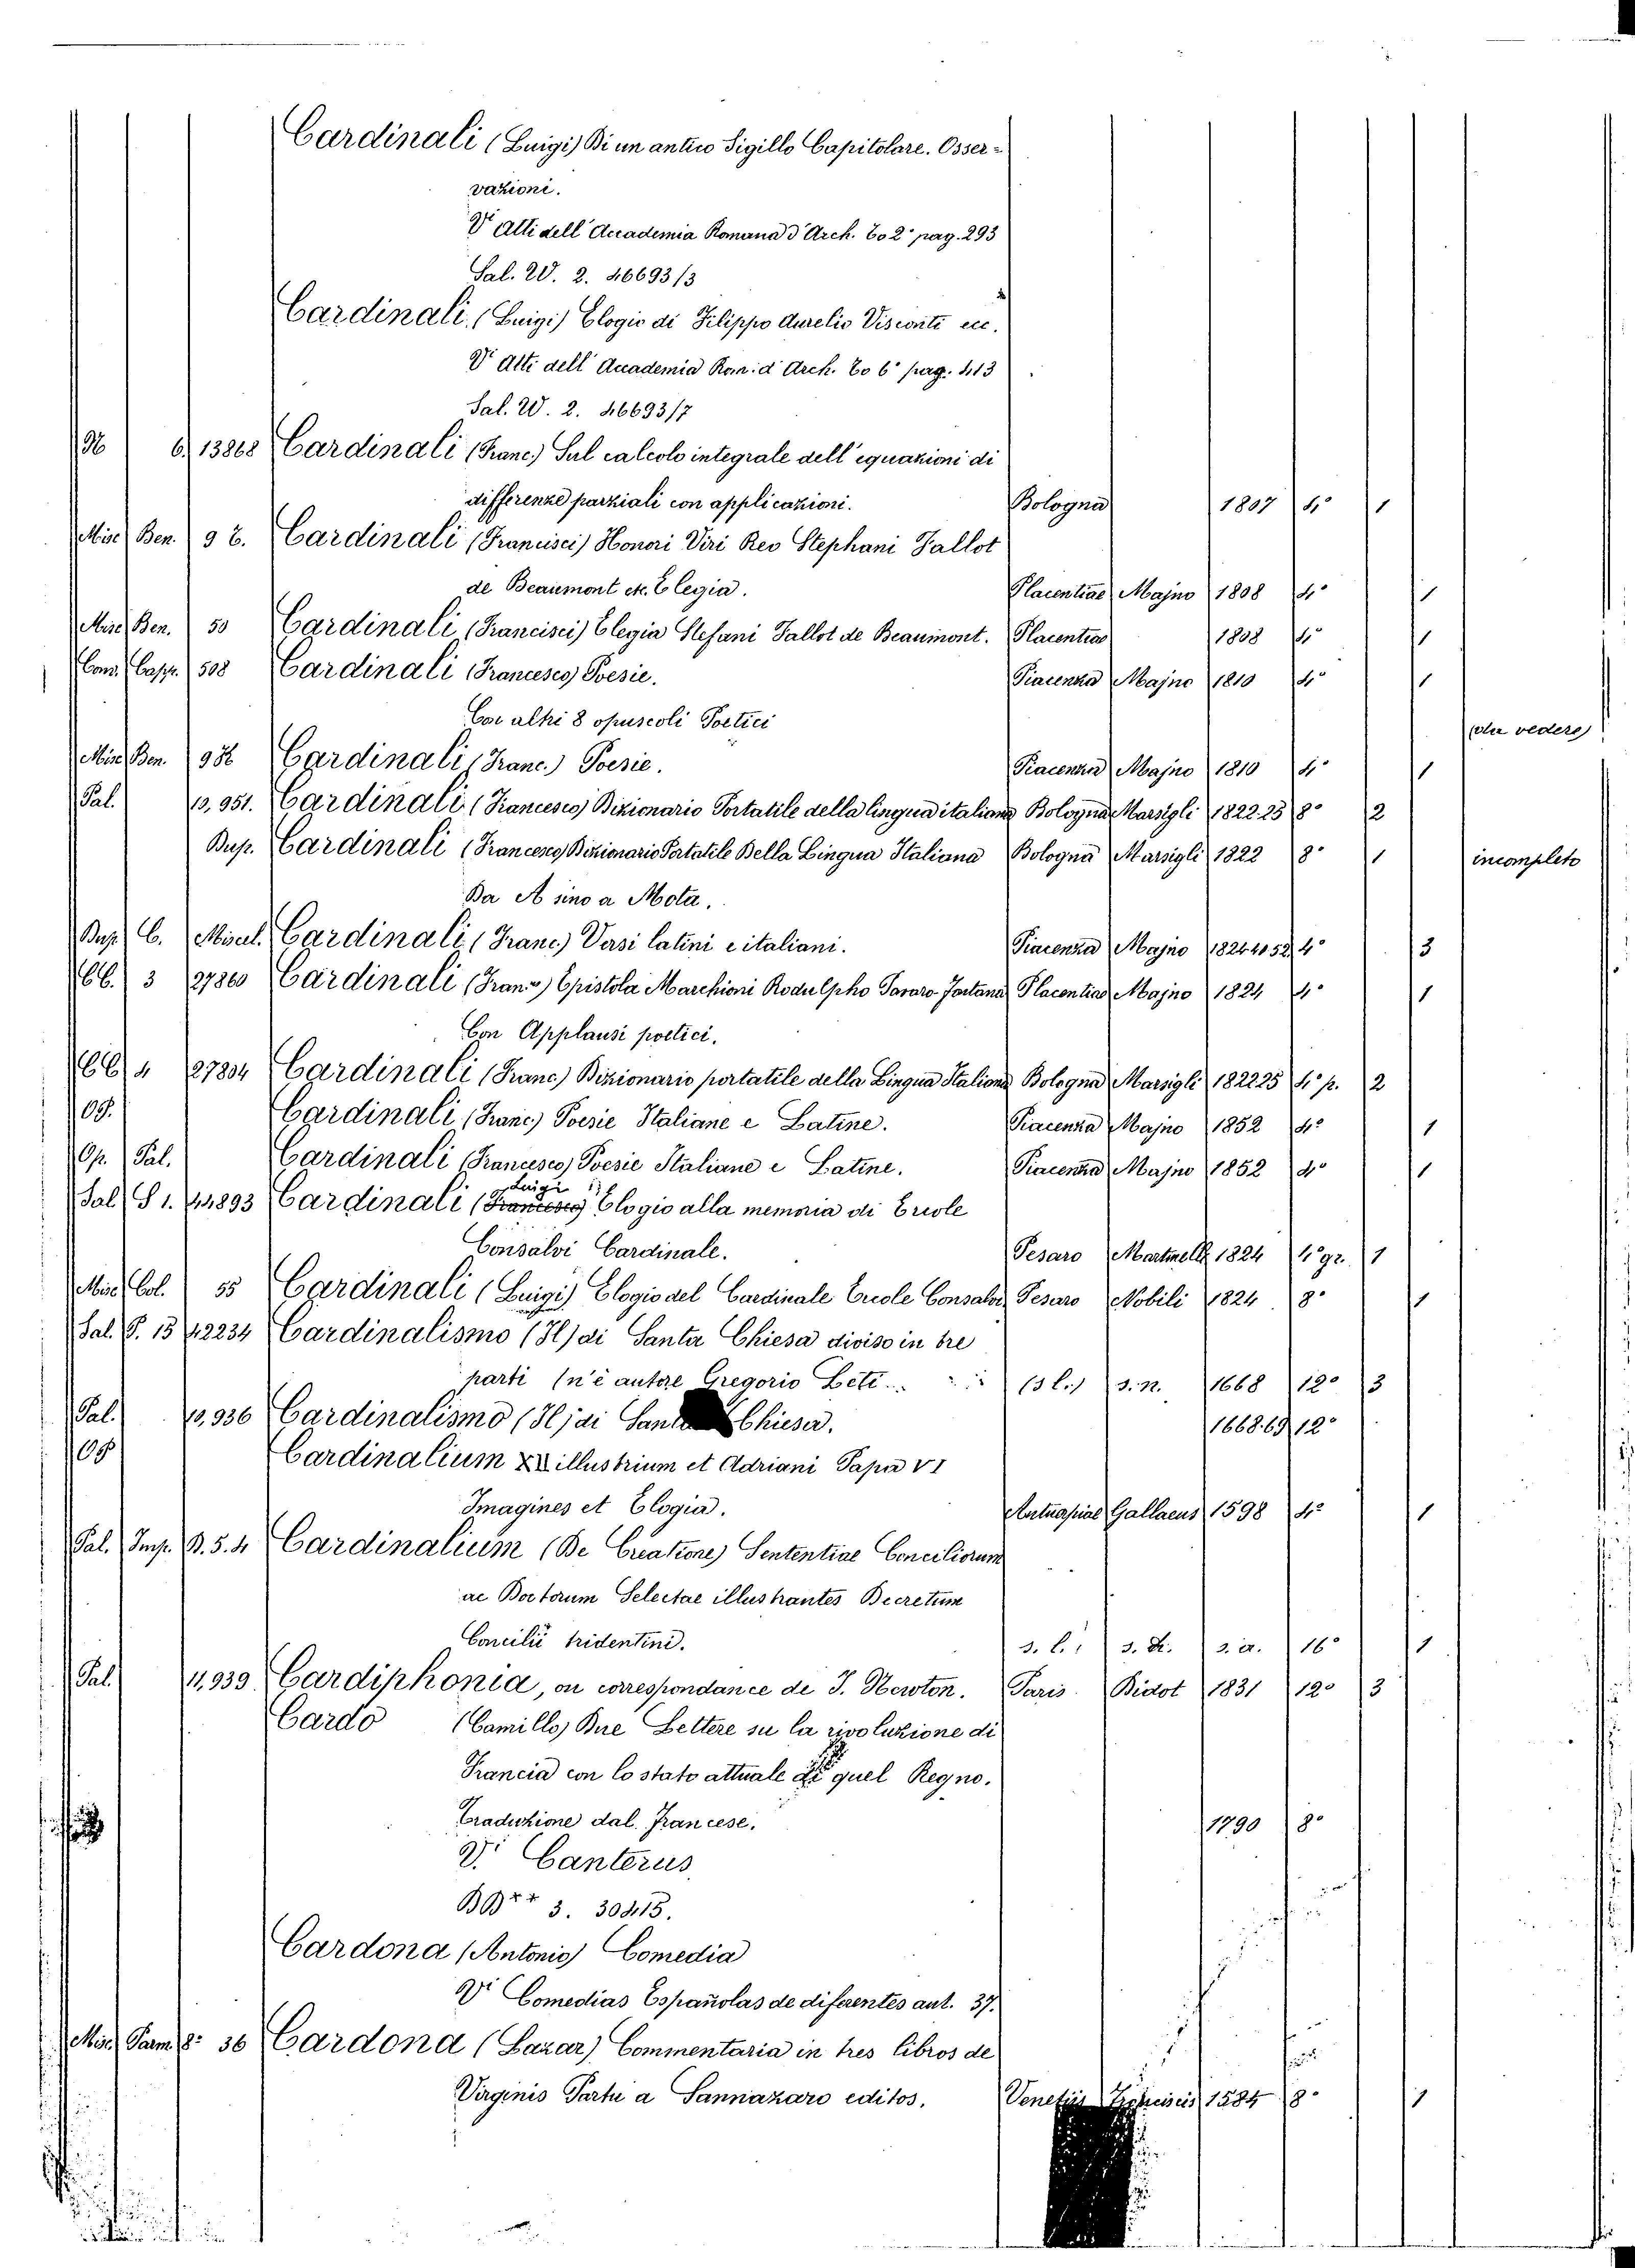 Cardinali (Luigi) Di un antico Sigillo Capitolare. Osser-
vazioni.
Vi Atti dell'Accademia Romana d'Arch. To 2° pag. 293
Sal. W. 2. 46693/3
Cardinali (Luigi) Elogio di Filippo Aurelio Visconti ec.
Vi Atti dell'Accademia Rom. d'Arch. To 6° pag. 413
Sal. W. 2. 46693/7
N 6. 13868 Cardinali (Franc.) Sul calcolo integrale dell'equazioni di
differenze parziali con applicazioni. Bologna 1807 4° 1
Misc. Ben. 9 Cardinali (Francisci) Honori Viri Rev Stephani Fallot
de Beaumont etc. Elegia. Placentiae Majno 1808 4° 1
Misc. Ben. 50 Cardinali (Francisci) Elegia Stefani Fallot de Beaumont. Placentiae 1808 4° 1
Com. Capp. 508 Cardinali (Francesco) Poesie. Piacenza Majno 1810 4° 1
Con altri 8 opuscoli Poetici
(da vedere)
Misc. Ben. Cardinali (Franc.) Poesie. Piacenza Majno 1810 4° 1
Pal. 13,951. Cardinali (Francesco) Dizionario Portatile della lingua italiana Bologna Marsigli 1822.25 8° 2
Dup. Cardinali (Francesco) Dizionario Portatile Della Lingua Italiana Bologna Marsigli 1822 8° 1 incompleto
Da A sino a Mota.
Dup. C. Miscel. Cardinali (Franc.) Versi latini e italiani. Piacenza Majno 4° 3
CC. 3 27860 Cardinali (Franc.) Epistola Marchioni Rodulpho Pavaro-Fontana Placentiae Majno 1824 4° 1
Con Applausi poetici.
CC 4 27804 Cardinali (Franc.) Dizionario portatile della Lingua Italiana Bologna Marsigli 1822 25 4° p. 2
Cardinali (Franc.) Poesie Italiane e Latine. Piacenza Majno 1852 4° 1
Op. Pal. Cardinali (Francesco) Poesie Italiane e Latine. Piacenza Majno 1852 4° 1
Luigi
Sal. S 1. 44893 Cardinali (Francesco) Elogio alla memoria di Ercole
Consalvi Cardinale. Pesaro Martinelli 1824 4° gr. 1
Misc. Col. 55 Cardinali (Luigi) Elogio del Cardinale Ercole Consalvi Pesaro Nobili 1824 8° 1
Sal. P. 15 42234 Cardinalismo (Il) di Santa Chiesa diviso in tre
parti (n'è autore Gregorio Leti (s.l.) s.n. 1668 12° 3
Pal. 13,936 Cardinalismo (Il) di Santa Chiesa. 1668.69 12°
Cardinalium XII illustrium et Adriani Papa VI
Imagines et Elogia. Antuerpiae Gallaeus 1598 4° 1
Pal. Imp. B. 5. 4 Cardinalium (De Creatione) Sententiae Conciliorum
ac Doctorum Selectae illustrantes Decretum
Concilii tridentini. s. l. s. n. s. a. 16° 1
Pal. 11,939 Cardiphonia, ou correspondance de J. Newton. Paris Didot 1831 12° 3
Cardo (Camillo) Due Lettere su la rivoluzione di
Francia con lo stato attuale di quel Regno.
Traduzione dal Francese. 1790 8°
Vi Canterus
BB++ 3. 30415.
Cardona (Antonio) Comedia
Vi Comedias Españolas de diferentes aut. 37.
Misc. Parm. 8° 36 Cardona (Lazar) Commentaria in tres libros de
Virginis Partu a Sannazaro editos. Venetiis 1584 8° 1